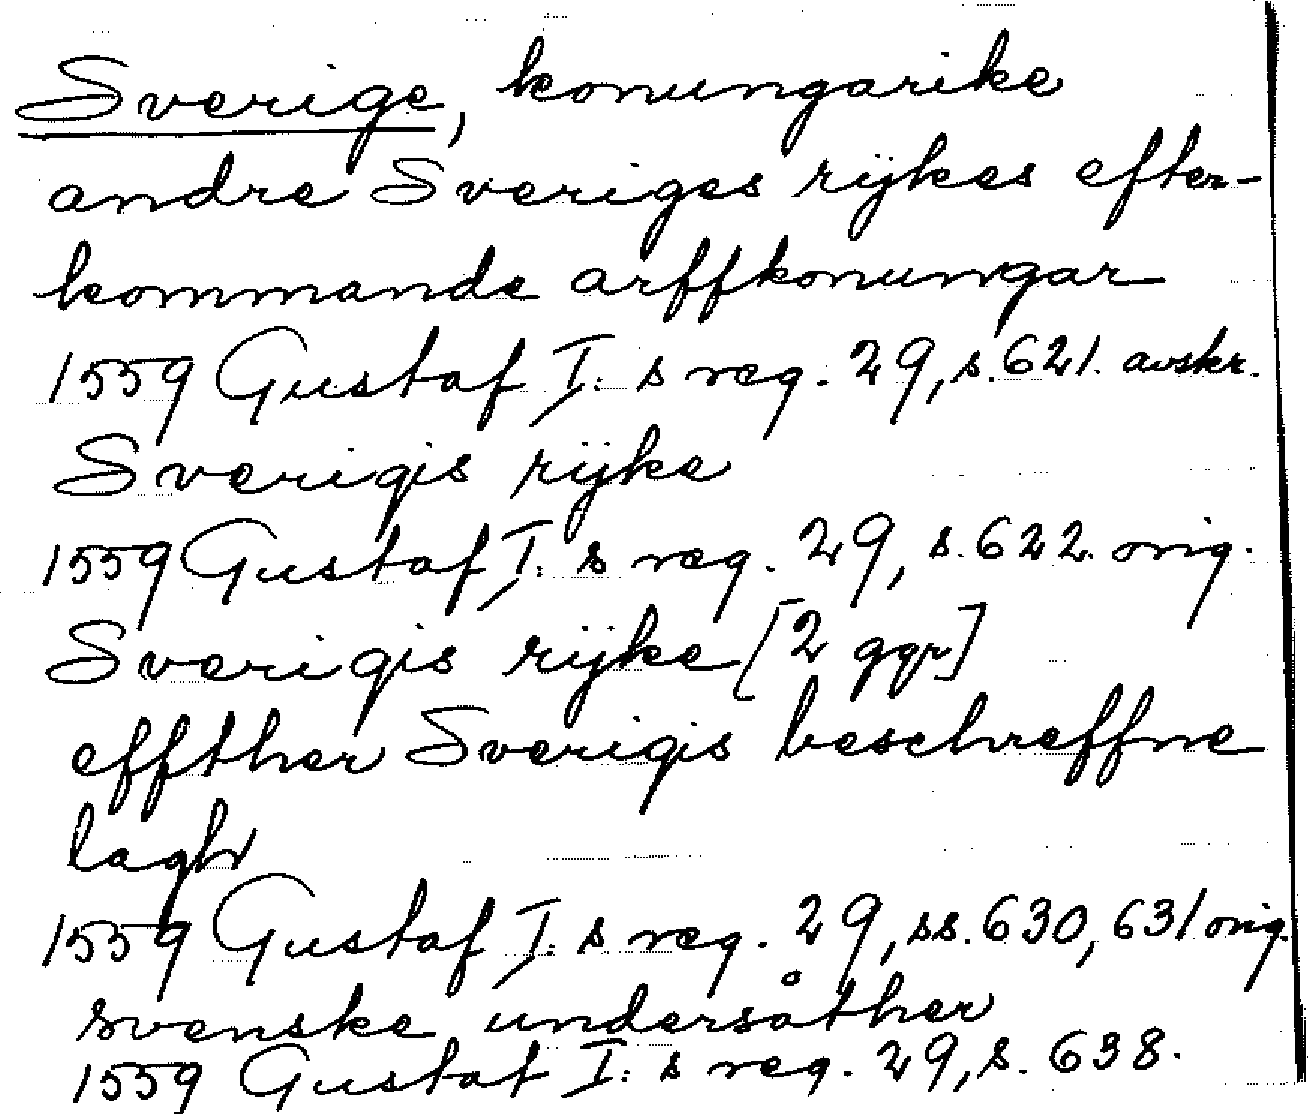 Sverige, konungarike
andre Sveriges rijkes efter-
kommande arffkonungar
1559 Gustaf I: s reg. 29, s. 621. avskr.
Sverigis rijke
1559 Gustaf I: s reg. 29, s. 622. orig.
Sverigis rijke [2 ggr]
effther Sverigis beschreffne
lagh
1559 Gustaf I: s reg. 29, ss. 630, 631 orig.
svenske undersåther
1559 Gustaf I: s reg. 29, s. 638.